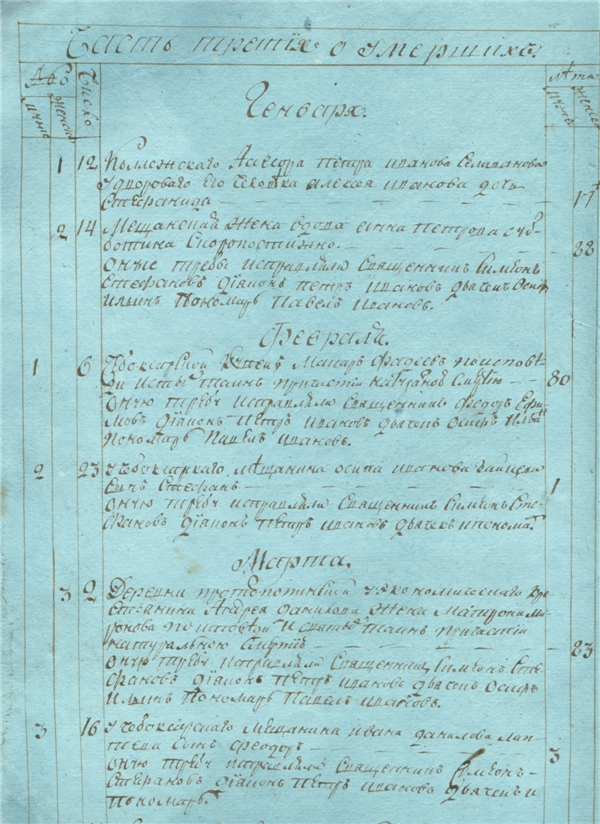 Часть третїя о умершихъ.
Число
лѣта
Генваря.
1 12 Коллежскаго Асесора Петра иванова Селиванова
у дворового Его человѣка алексея иванова дочь
Стефанида 17
2 14 Мещанская Жена вдова анна Петрова суб-
ботина Скоропостижно. 88
оные требы исправляли Священникъ Симеонъ
Стефановъ дїаконъ Петръ ивановъ дьячекъ Осипъ
Ильинъ Пономарь Павелъ ивановъ.
Февраля.
1 6 купецъ Макаръ Фадеевъ по исповѣ-
ди и святыхъ таинъ 80
оную требу исправляли Священникъ феодоръ Ефи-
мовъ дїаконъ Петръ ивановъ дьячекъ Осипъ Ильинъ
пономарь Павелъ ивановъ.
2 23 у чебоксарскаго мѣщанина осипа иванова
сынъ Стефанъ 1
оную требу исправляли Священникъ Симеонъ Сте-
фановъ дїаконъ Петръ ивановъ дьячекъ и понома.
Марта.
3 2 Деревни Кре-
стьянина Андрея данилова жена Матрона Ми-
ронова по исповѣди и святыхъ таинъ причастїи
натуральною смертїю 83
оную требу исправляли Священникъ Симеонъ Сте-
фановъ дїаконъ Петръ ивановъ дьячекъ Осипъ
Ильинъ Пономарь Павелъ ивановъ.
3 16 у чебоксарскаго Мещанина ивана данилова Лап-
тева сынъ феодоръ 3
оную требу исправляли Священникъ Симеонъ
Стефановъ дїаконъ Петръ ивановъ дьячекъ и
Пономарь.